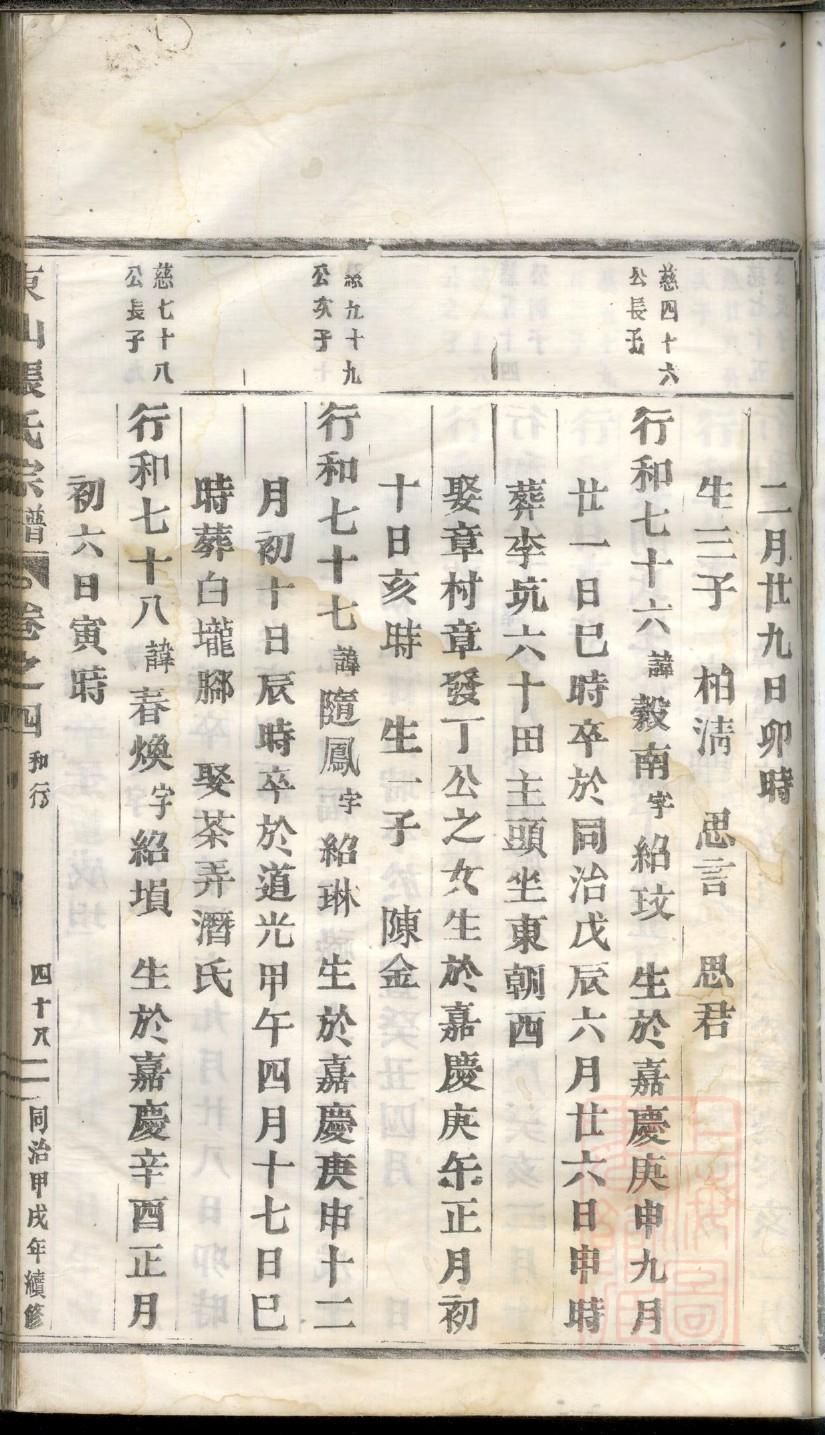 二月廿九日卯時
生三子　柏清　思言　思君
慈四十六
公長子
行和七十六諱穀南字紹玟　生於嘉慶庚申九月
廿一日巳時卒於同治戊辰六月廿六日申時
葬李坑六十田主頭坐東朝西
娶章村章發丁公之女生於嘉慶庚午正月初
十日亥時　生一子　陳金
慈九十九
公次子
行和七十七諱隨鳳字紹琳　生於嘉慶庚申十二
月初十日辰時卒於道光甲午四月十七日巳
時葬白壠腳　娶茶弄潛氏
慈七十八
公長子
行和七十八諱春煥字紹塤　生於嘉慶辛酉正月
初六日寅時
東山張氏宗譜　卷之四　和行　四十八　同治甲戌年續修